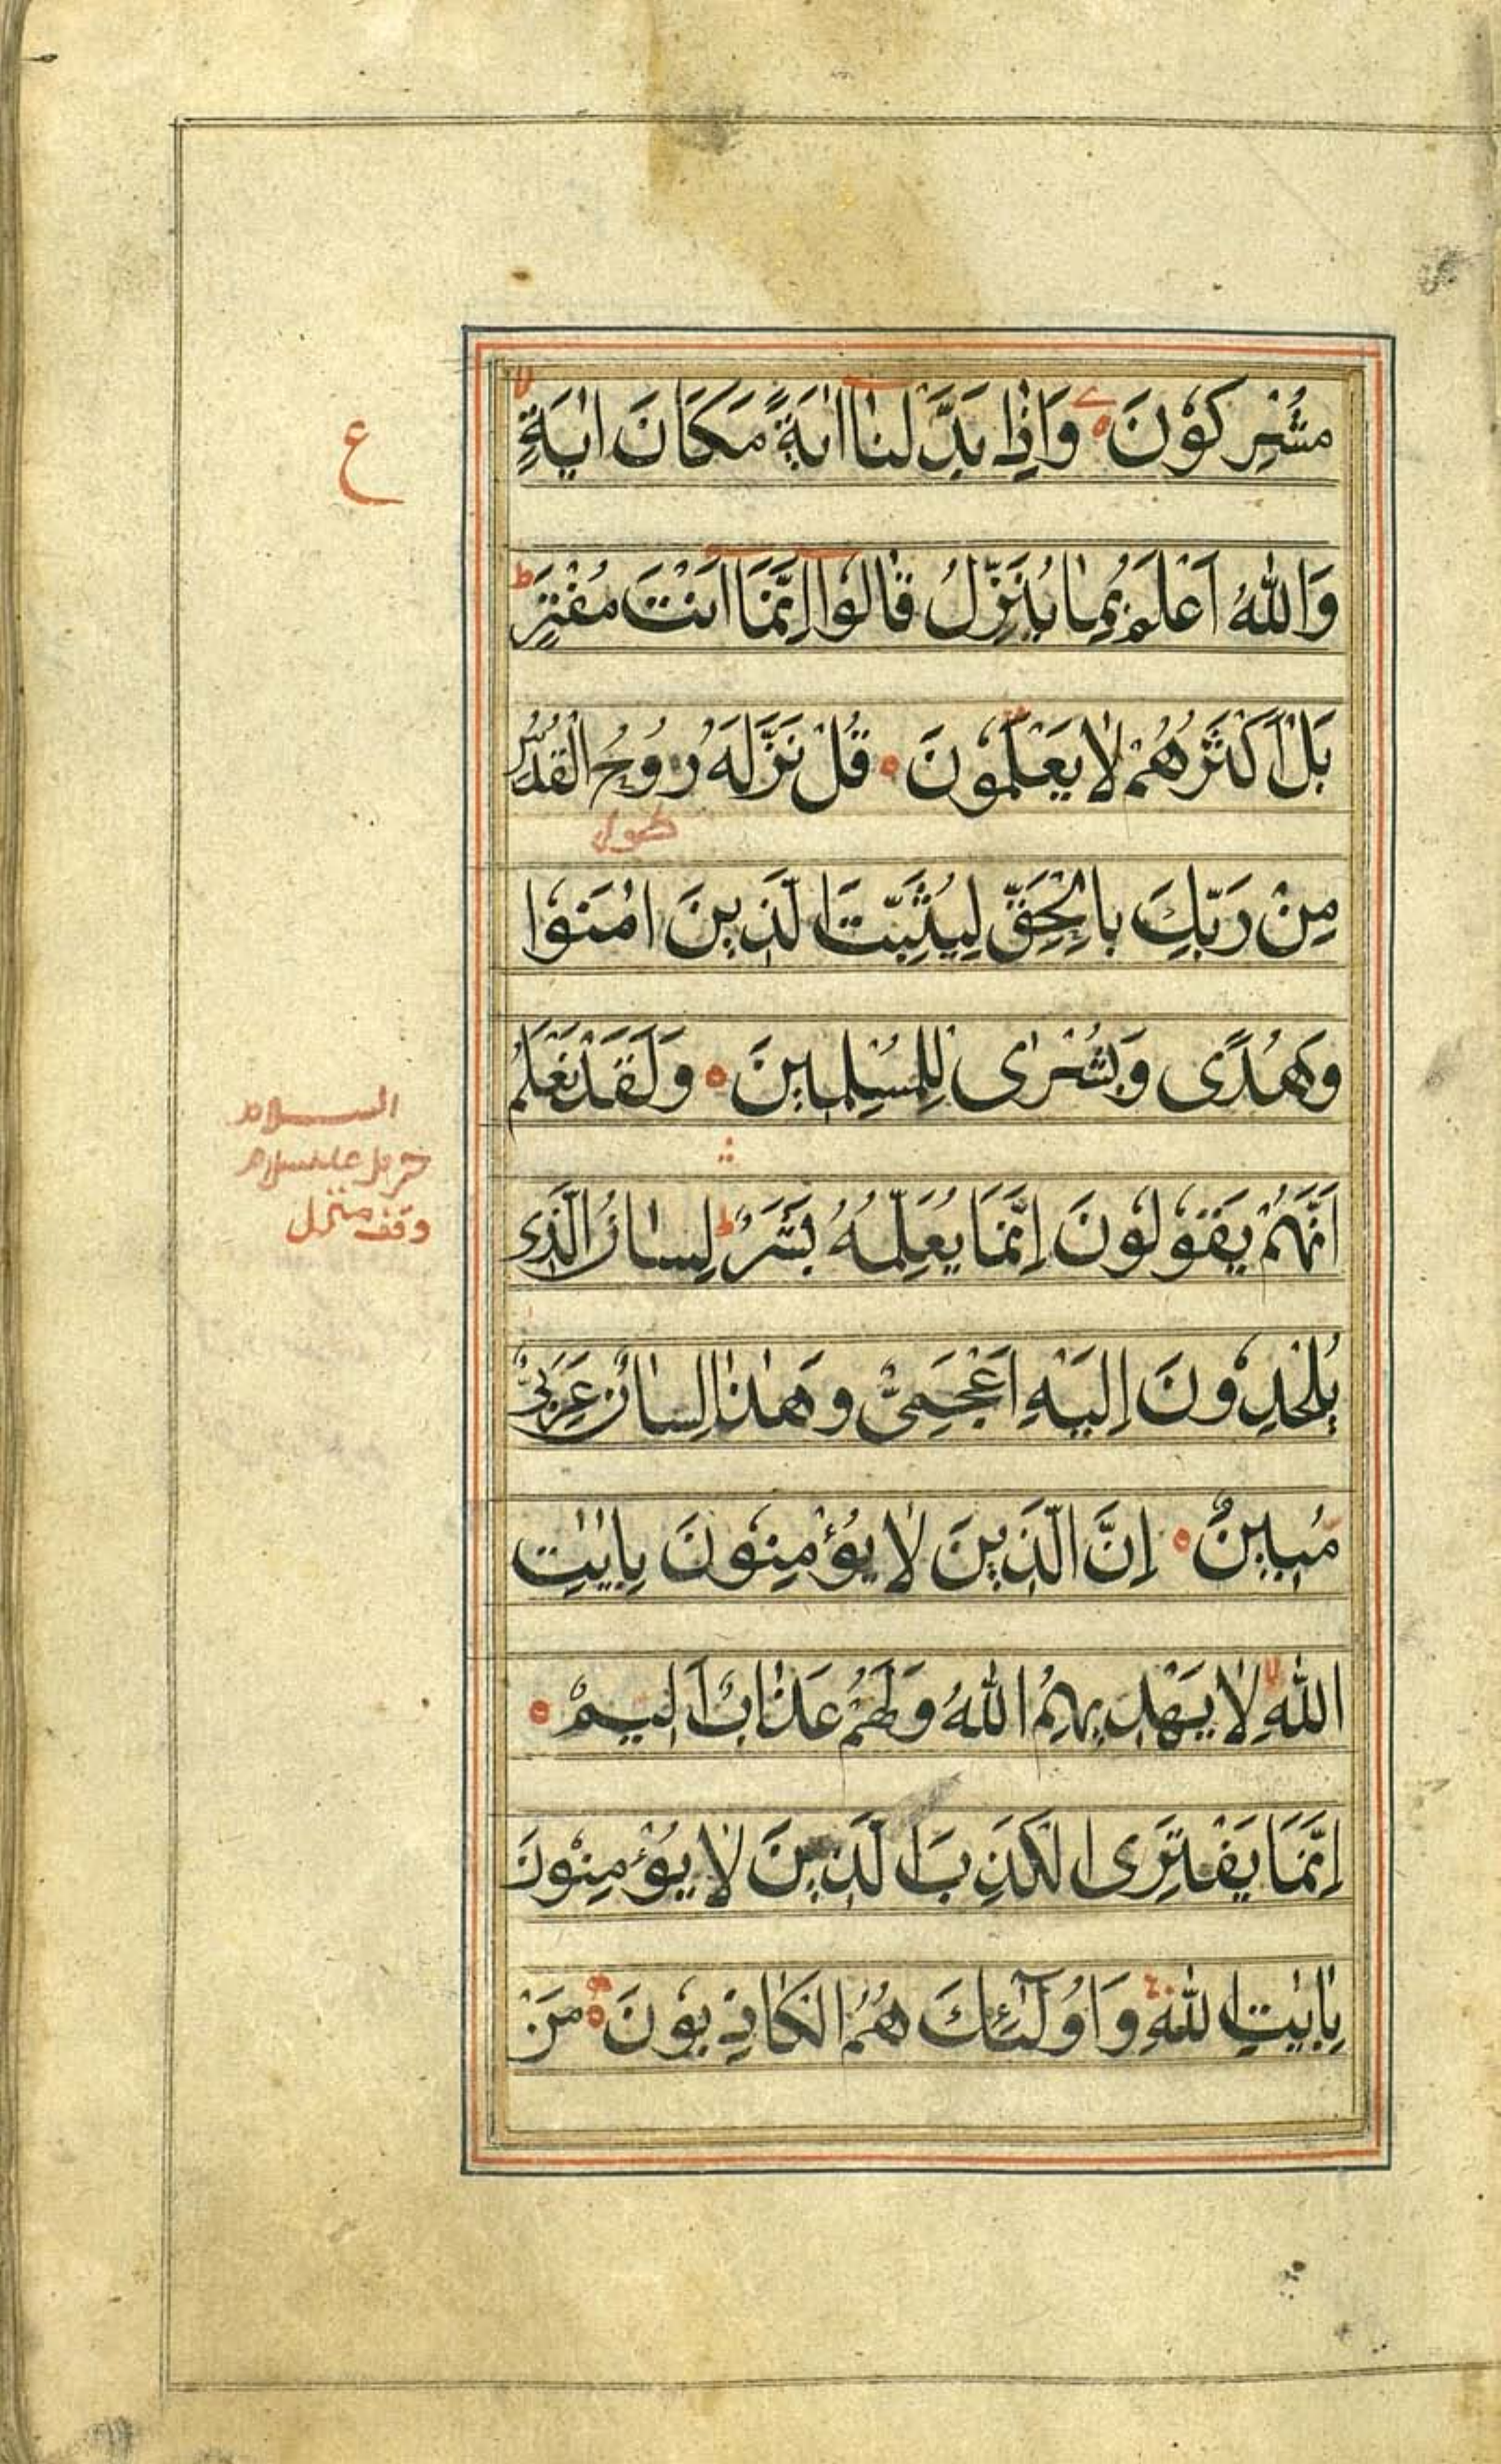 مُشْرِكُوْنَ وَاِذَا بَدَّلْنَا اٰيَةً مَكَانَ اٰيَةٍ
ع
وَاللّٰهُ اَعْلَمُ بِمَا يُنَزِّلُ قَالُوْا اِنَّمَا اَنْتَ مُفْتَرٍ ط
بَلْ اَكْثَرُهُمْ لَا يَعْلَمُوْنَ قُلْ نَزَّلَهٗ رُوْحُ الْقُدُسِ
مِنْ رَبِّكَ بِالْحَقِّ لِيُثَبِّتَ الَّذِيْنَ اٰمَنُوْا
وَهُدًى وَبُشْرٰى لِلْمُسْلِمِيْنَ وَلَقَدْ نَعْلَمُ
اَنَّهُمْ يَقُوْلُوْنَ اِنَّمَا يُعَلِّمُهٗ بَشَرٌ ط لِسَانُ الَّذِى
وقف منزل
يُلْحِدُوْنَ اِلَيْهِ اَعْجَمِىٌّ وَهٰذَا لِسَانٌ عَرَبِىٌّ
مُبِيْنٌ اِنَّ الَّذِيْنَ لَا يُؤْمِنُوْنَ بِاٰيٰتِ
اللّٰهِ لا لَا يَهْدِيْهِمُ اللّٰهُ وَلَهُمْ عَذَابٌ اَلِيْمٌ
اِنَّمَا يَفْتَرِى الْكَذِبَ الَّذِيْنَ لَا يُؤْمِنُوْنَ
بِاٰيٰتِ اللّٰهِ وَاُولٰٓئِكَ هُمُ الْكَاذِبُوْنَ مَنْ